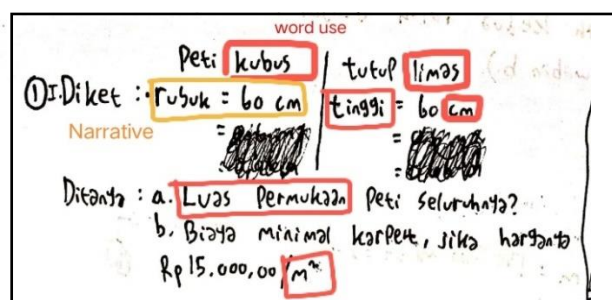 word use
Peti kubus | tutup limas
① I. Diket : • rusuk = 60 cm | tinggi = 60 cm
Narrative
=
=
Ditanya : a. Luas Permukaan Peti seluruhnya?
b. Biaya minimal karpet, jika harganya
Rp 15.000,00/m²